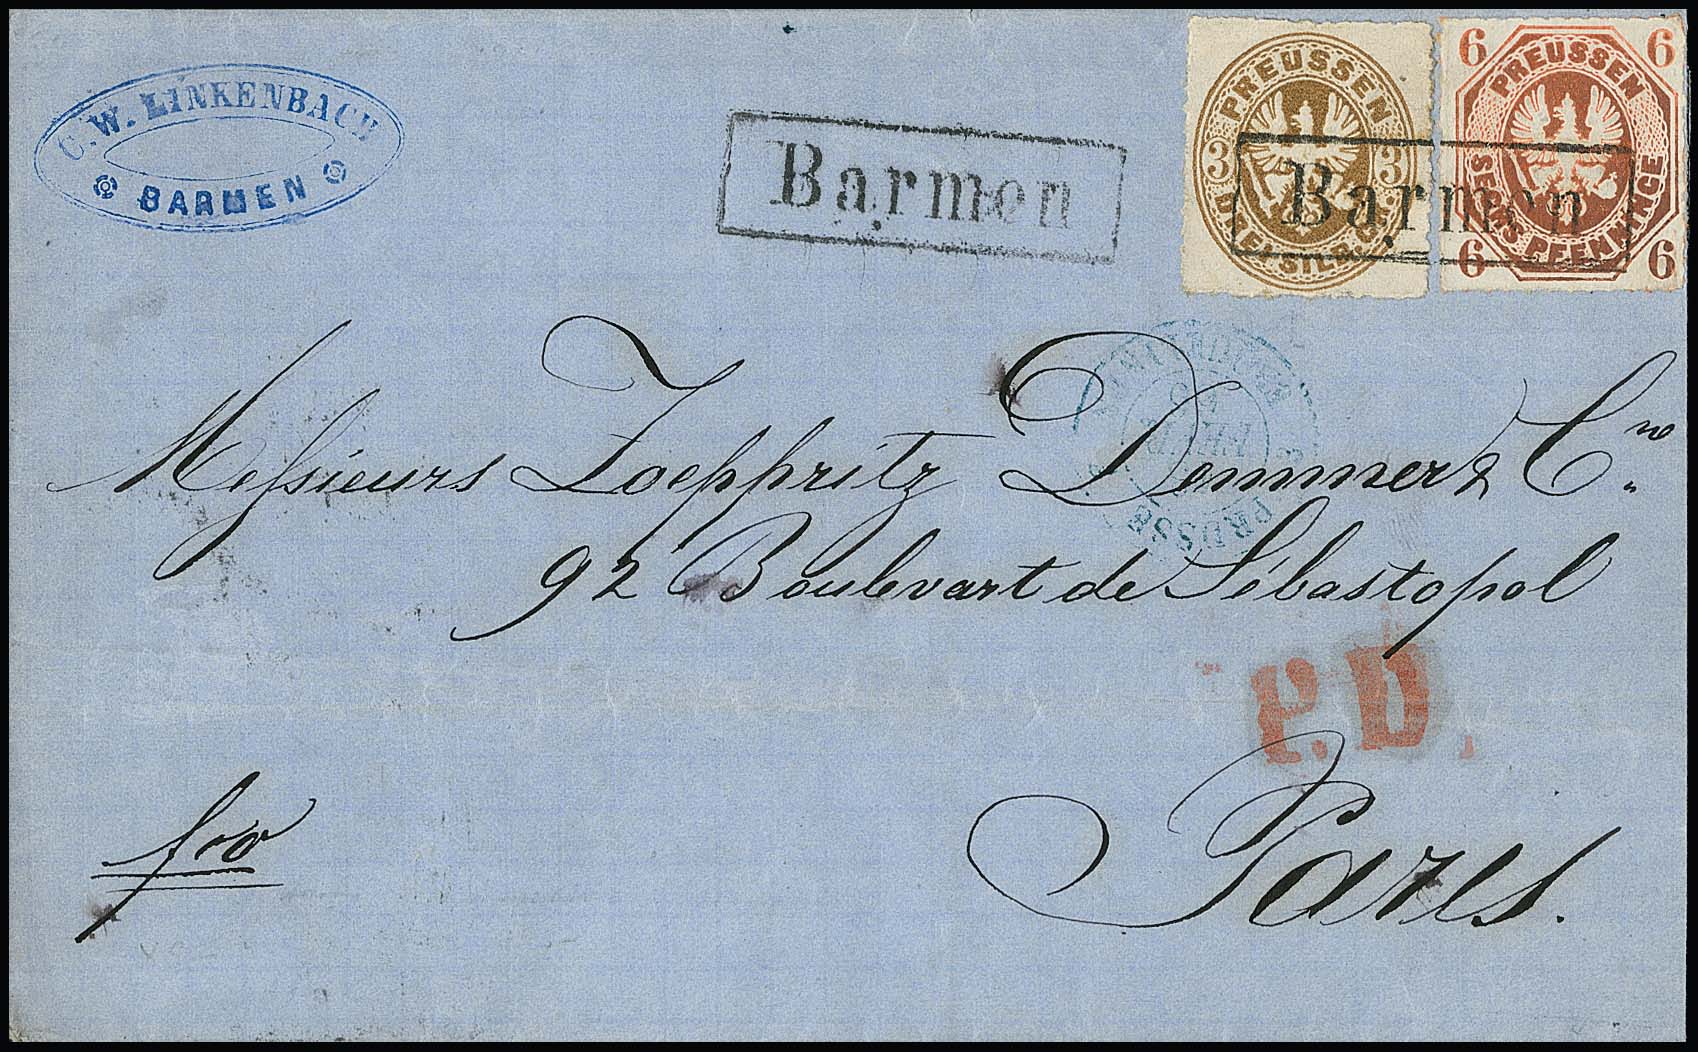 C. W. LINKENBACH
BARMEN
Barmen
PREUSSEN
3 3
DREI SILB. GR.
6 6
PREUSSEN
SECHS PFENNINGE
6 6
Barmen
Messieurs Zoeppritz Demmer & Cie
92 Boulevart de Sébastopol
PRUSSE
P.D.
fro
Paris.